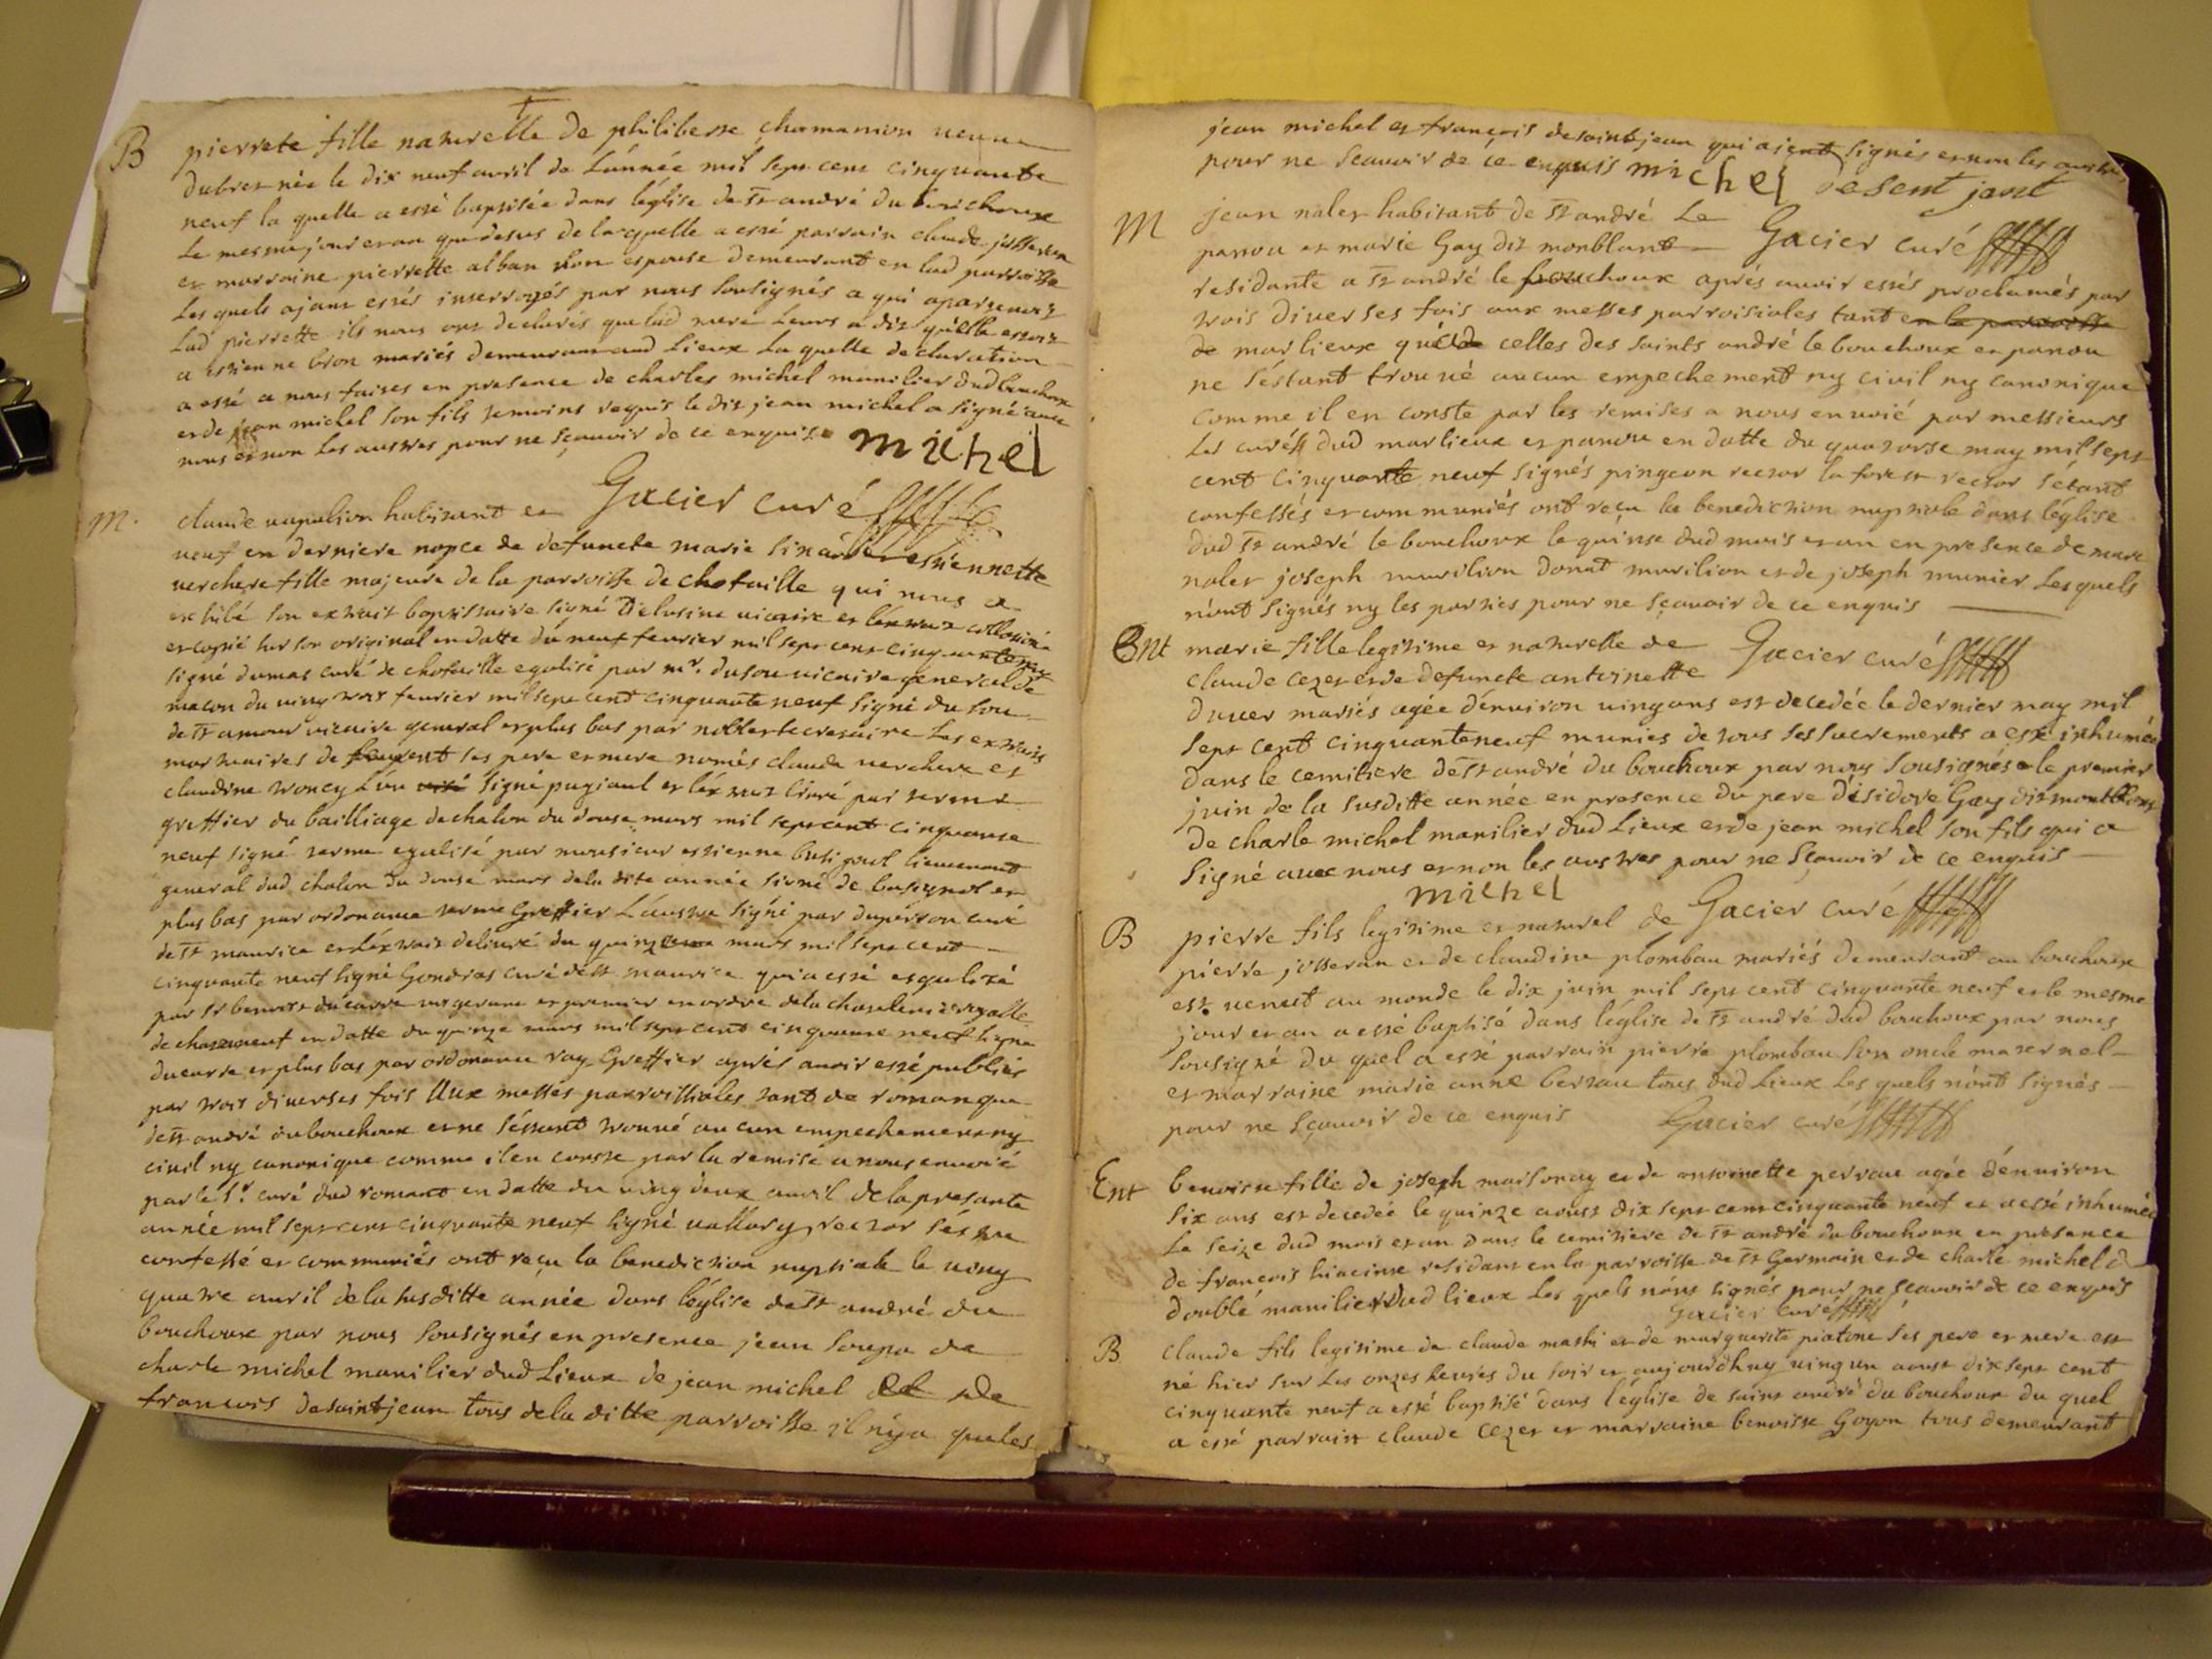 B pierrete fille naturelle de philiberte chamanion veuve
dubret née le dix neuf avril de l'année mil sept cent cinquante
neuf la quelle a esté baptisée dans léglise de st andré du bouchoux
le mesme jour et an que desus de laquelle a esté parrain claude josseran
et marraine pierrette alban son espouse demeurant en lad parroisse
les quels ajant estés interrogés par nous sousignés a qui apartenoit
lad pierrette ils nous ont declarés que lad mere leurs a dit qu'elle estoit
a estienne bron mariés demeurant aud lieux la quelle declaration
a esté a nous faites en presence de charles michel manilier dud bouchoux
et de jean michel son fils temoins requis le dit jean michel a signé avec
nous et non les austres pour ne sçauoir de ce enquis michel
Gacier curé
M. claude uapalion habitant et
veuf en derniere nopce de defuncte marie et estiennette
verchere fille majeure de la parroisse de chofaille qui nous a
exhibé son extrait baptistaire signé Delusine uicaire et l'extrait collationé
et copié sur son original en datte du neuf feurier mil sept cent cinquante neuf
signé dumas curé de chofaille egalisé par mr. dusou uicaire general de
macon du uing trois feurier mil sept cent cinquante neuf signé du sou
de st amour uicaire general et plus bas par nollet secretaire les extraits
mortuaires de ses pere et mere només claude verchere et
claudine troncy l'un signé pugiaul et l'extrait liuré par terme
greffier du bailliage de chalon du douse mars mil sept cent cinquante
neuf signé terme egalisé par monsieur estienne lieutenant
general dud chalon du douse mars de la dite année signé de et
plus bas par ordonance terme Greffier L'austre signé par duperron curé
de st maurice et l'extrait deliuré du quinze mars mil sept cent
cinquante neuf signé Gondras curé de st maurice qui a esté esgalisé
par sr benoist ducarre et premier en ordre de la chatelenie royalle
de chateauneuf en datte du quinze mars mil sept cent cinquante neuf signé
ducarre et plus bas par ordonance ray Greffier aprés auoir esté publiés
par trois diuerses fois Aux messes parroissiales tant de roman que
de st andré du bouchoux et ne séstant trouué aucun empechement ny
ciuil ny canonique comme il en conste par la remise a nous enuoié
par le sr. curé dud romant en datte du uing deux auril de la presante
année mil sept cent cinquante neuf signé uallory rector sés tre
confessé et communiés ont reçu la benediction nuptiale le uing
quatre auril de la susditte année dans léglise de st andré du
bouchoux par nous sousignés en presence jean soupa de
charle michel manilier dud Lieux de jean michel et de
francois de saint jean tous de la ditte parroisse il n'y a que les
jean michel et françois de saint jean qui aient signés et non les austres
pour ne scauoir de ce enquis michel desent jant
M jean nalet habitant de st andré Le Gacier curé
panou et marie Gay dit monblant
residante a st andré le bouchoux aprés auoir estés proclamés par
trois diuerses fois aux messes parroisiales tant en la parroisse
de marlieux qu'a celles des saints andré le bouchoux et panou
ne séstant trouué aucun empechement ny ciuil ny canonique
comme il en conste par les remises a nous enuoié par messieurs
les curés dud marlieux et panou en datte du quatorse may mil sept
cent cinquante neuf signés pingeon rector la forest rector sétant
confessés et communiés ont reçu la benediction nuptiale dans léglise
dud st andré le bouchoux le quinse dud mois et an en presence de marc
nalet joseph marilion donat marilion et de joseph munier Lesquels
n'ont signés ny les parties pour ne sçauoir de ce enquis
Ent marie fille legitime et naturelle de Gacier curé
claude cezet et de defuncte antoinette
duuer mariés agée d'enuiron uing ans est decedée le dernier may mil
sept cent cinquante neuf munies de tous les sacrements a esté inhumée
dans le cemitiere de st andré du bouchoux par nous sousignés le premier
juin de la susditte année en presence du pere d'isidore Gay dit montblant
de charle michel manilier dud Lieux et de jean michel son fils qui a
signé auec nous et non les austres pour ne sçauoir de ce enquis
michel
B pierre fils legitime et naturel de Gacier curé
pierre josseran et de claudine plombau mariés demeurant au bouchoux
est uenut au monde le dix juin mil sept cent cinquante neuf et le mesme
jour et an a esté baptisé dans léglise de st andré dud bouchoux par nous
sousigné du quel a esté parrain pierre plombau son oncle maternel
et marraine marie anne bertau tous dud Lieux Les quels n'ont signés
pour ne sçauoir de ce enquis Gacier curé
Ent benoiste fille de joseph maisonay et de antoinette perrau agée d'enuiron
six ans est decedée le quinze aoust dix sept cent cinquante neuf et a esté inhumée
le seize dud mois et an dans le cemitiere de st andré du bouchoux en presance
de françois hiacinte residant en la parroisse de st Germain et de charle michel d
doublé manilier dud lieux Les quels n'ont signés pour ne scauoir de ce enquis
Gacier curé
B claude fils legitime de claude mathi et de marguerite piatone ses pere et mere est
né hier sur les onzes heures du soir et aujourdhuy uing un aoust dix sept cent
cinquante neuf a esté baptisé dans léglise de saint andré du bouchoux du quel
a esté parrain claude cezet et marraine benoiste Goyon tous demeurant